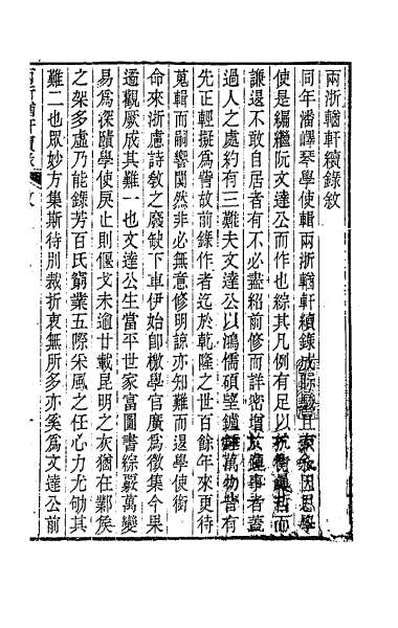 兩浙輶軒續錄敘
同年潘嶧琴學使輯兩浙輶軒續錄成賒
使是編繼阮文達公而作也綜其凡例有足以
謙退不敢自居者有不必盡紹前修而詳密增事者蓋
過人之處約有三難夫文達公以鴻儒碩望鑪錘萬物皆有
先正輕擬爲訾故前錄作者迄於乾隆之世百餘年來更待
蒐輯而嗣響闃然非必無意修明諒亦知難而退學使銜
命來浙慮詩敎之廢缺下車伊始卽檄學官廣爲徵集今果
遹觀厥成其難一也文達公生當平世家富圖書綜覈萬變
易爲深賾學使戾止則偃戈未逾廿載昆明之灰猶在鄴矦
之架多虛乃能錄芳百氏窮業五際采風之任心力尤劬其
難二也眾妙方集斯待別裁折衷無所多亦奚爲文達公前